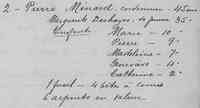 2 - Pierre Ménard, cordonnier - 45 ans
Marguerite Deshayes, sa femme 35 -
Enfants Marie - 10 -
Pierre - 9 -
Madeleine - 7 -
Geneviève - 10 -
Catherine - 2 -
1 fusil - 4 bêtes à cornes
6 arpents en valeur